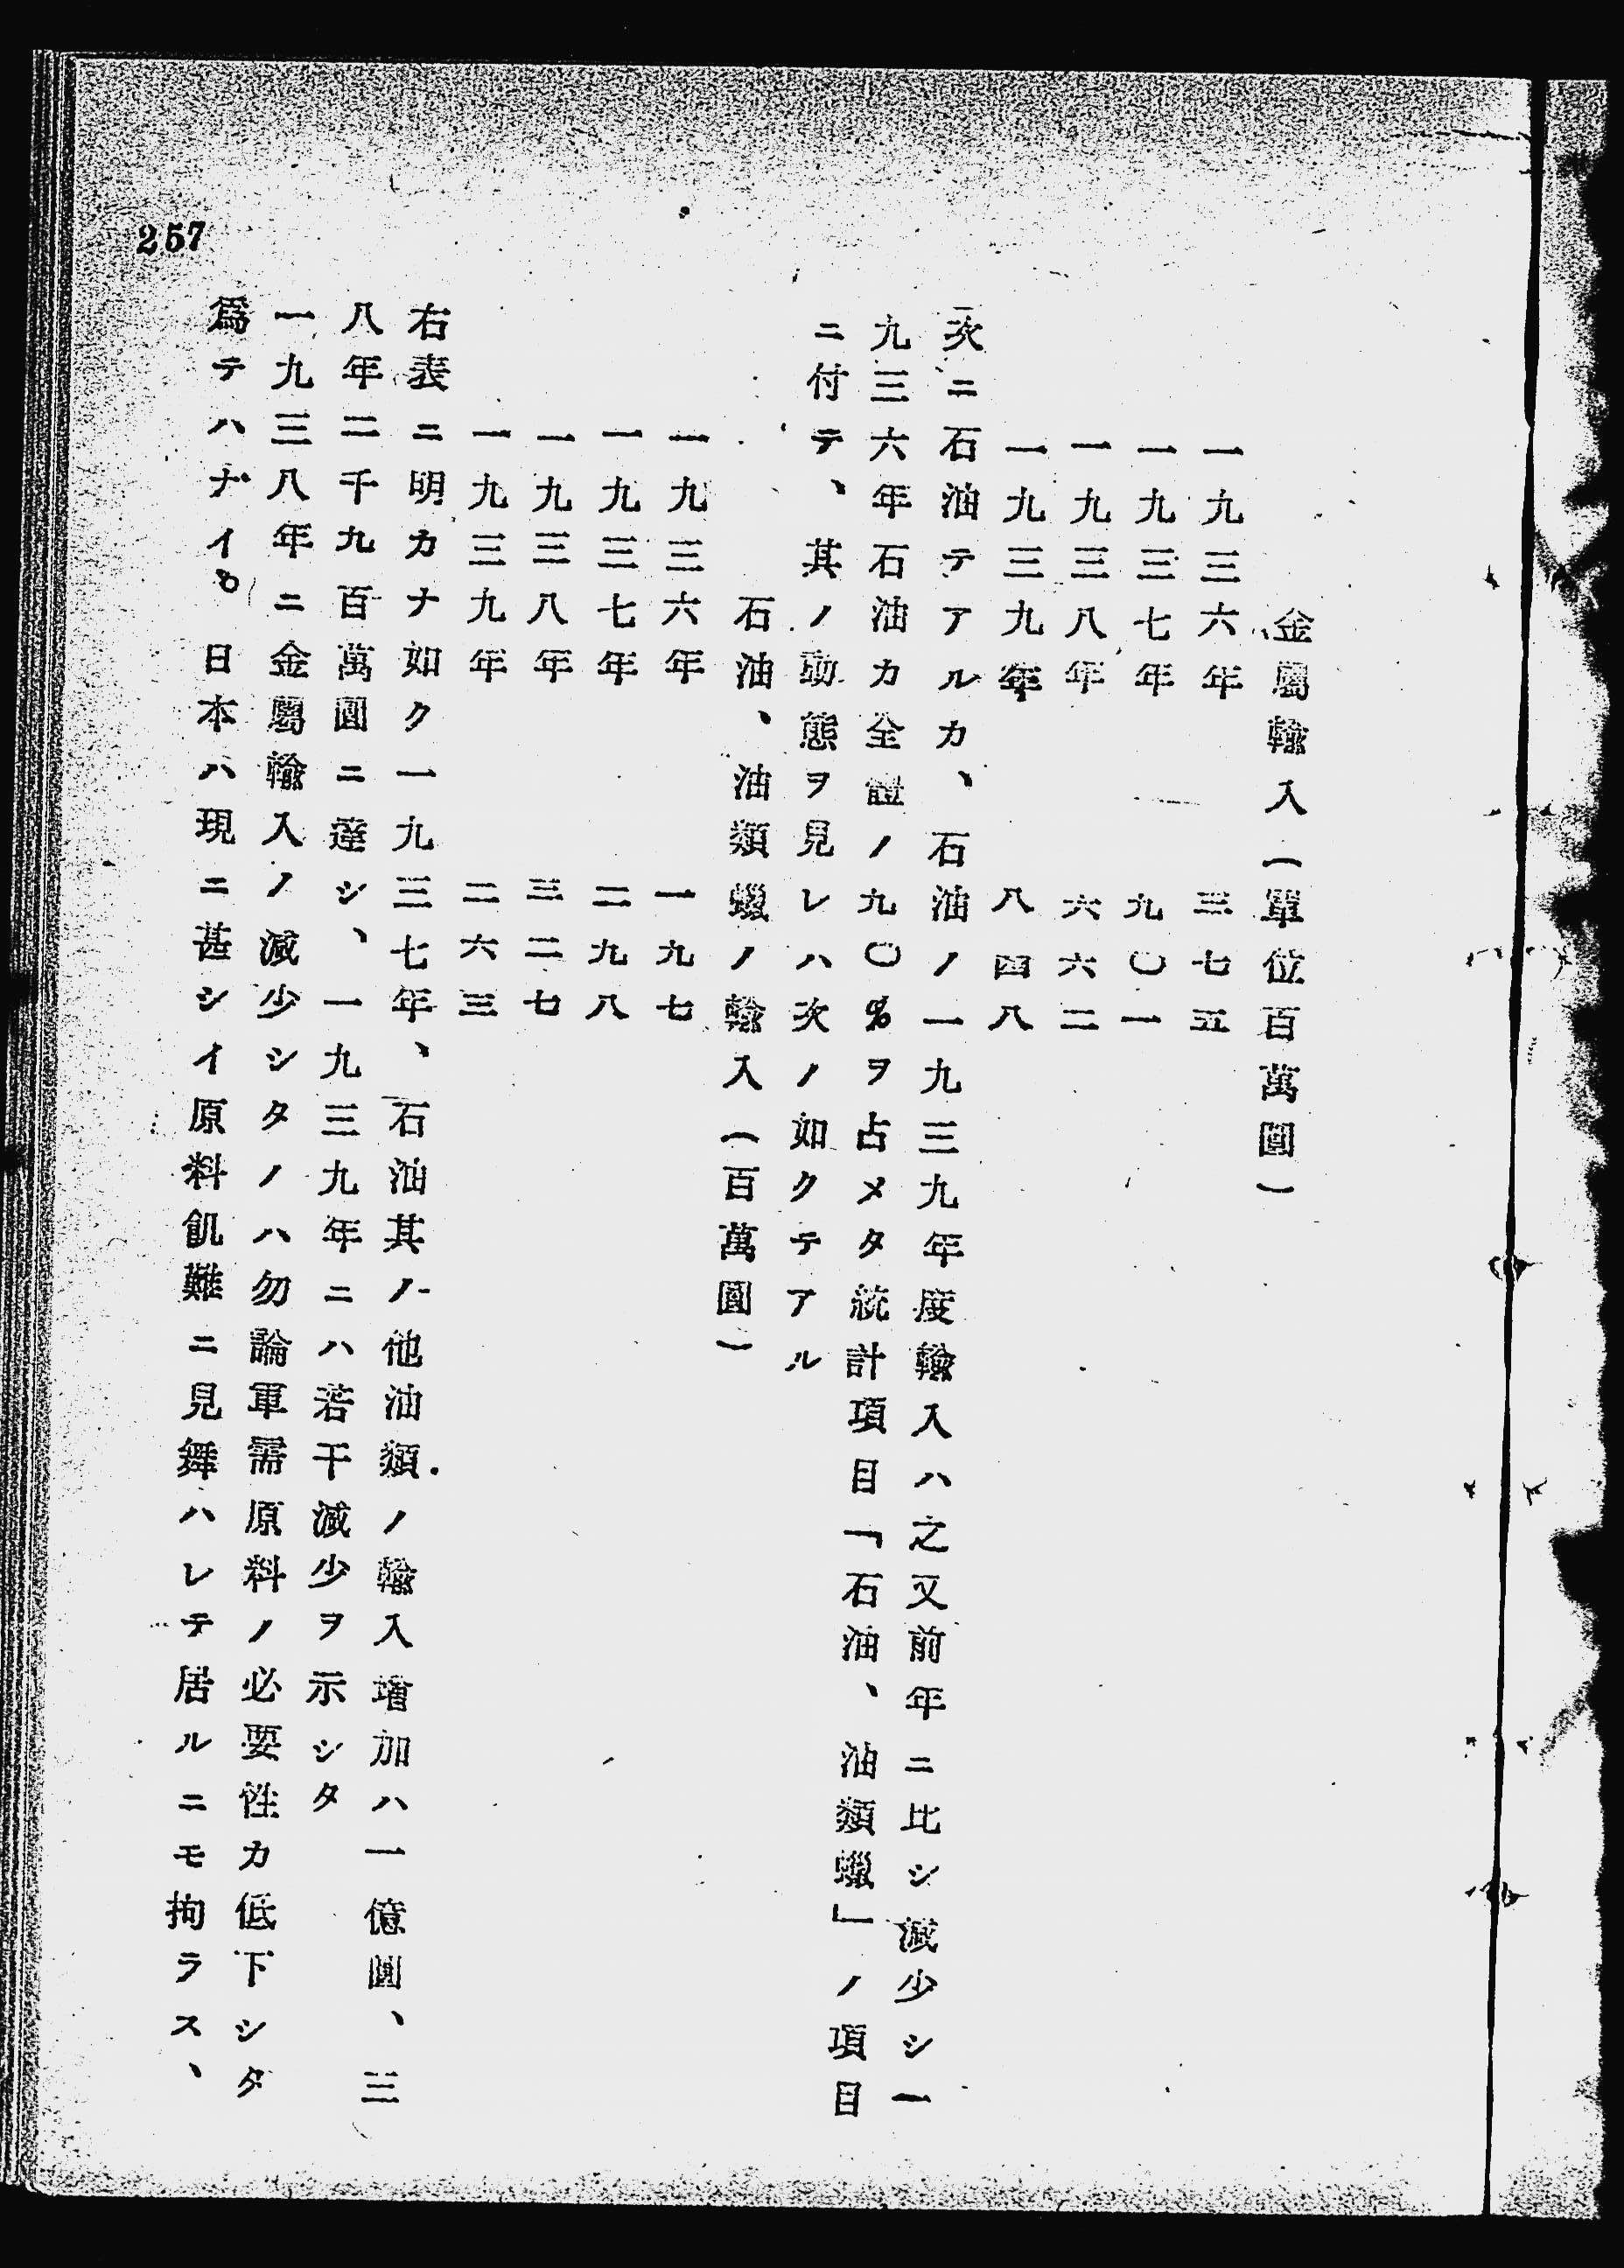 金屬輸入(單位百萬圓)
一九三六年 三七五
一九三七年 九〇一
一九三八年 六六二
一九三九年 八四八
次ニ石油テアルカ、石油ノ一九三九年度輸入ハ之又前年ニ比シ減少シ一
九三六年石油カ全體ノ九〇%ヲ占メタ統計項目「石油、油類蠟」ノ項目
ニ付テ、其ノ動態ヲ見レハ次ノ如クテアル
石油、油類蠟ノ輸入(百萬圓)
一九三六年 一九七
一九三七年 二九八
一九三八年 三二七
一九三九年 二六三
右表ニ明カナ如ク一九三七年、石油其ノ他油類ノ輸入增加ハ一億圓、三
八年二千九百萬圓ニ達シ、一九三九年ニハ若干減少ヲ示シタ
一九三八年ニ金屬輸入ノ減少シタノハ勿論軍需原料ノ必要性カ低下シタ
爲テハナイ。日本ハ現ニ甚シイ原料飢難ニ見舞ハレテ居ルニモ拘ラス、
257